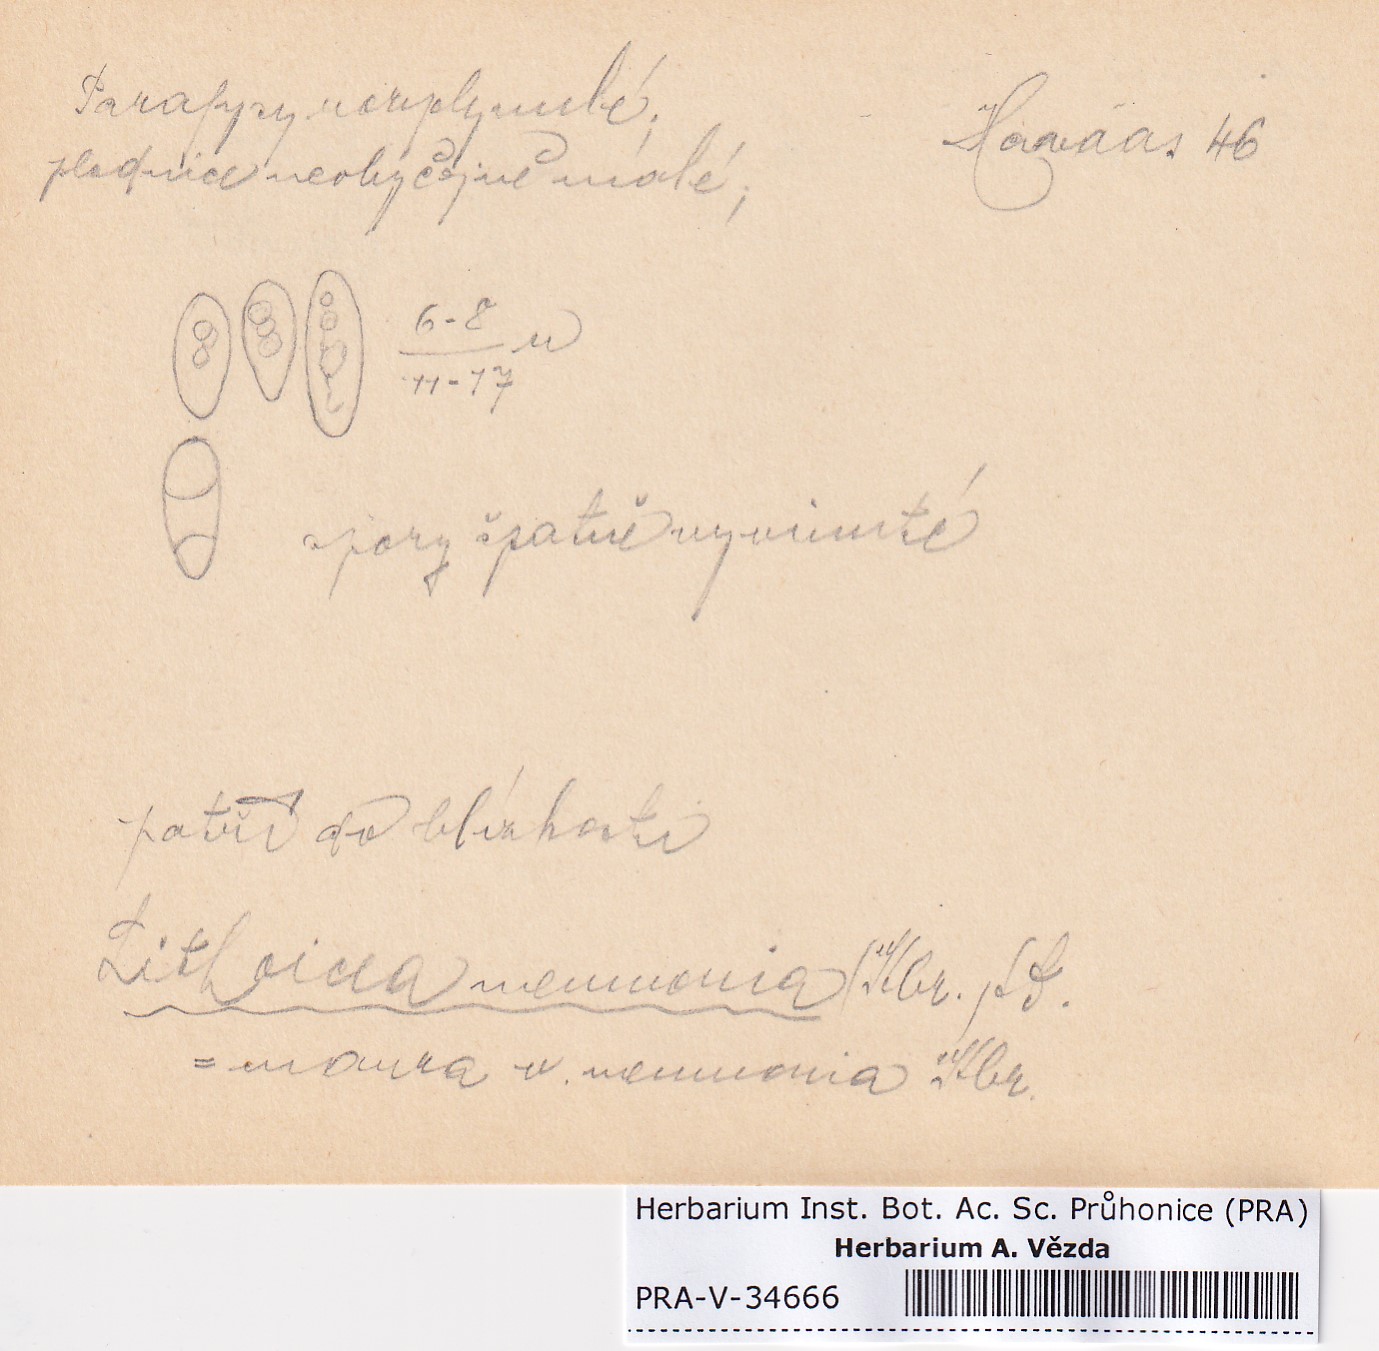 Parafysy rozplynulé;
plodnice neobyčejně malé;
Havaas 46
6-8
11-17 u
spory špatně vyvinuté
patří do blízkosti
Lithoicea nemmonia
= maura v. nemmonia
Herbarium Inst. Bot. Ac. Sc. Průhonice (PRA)
Herbarium A. Vězda
PRA-V-34666